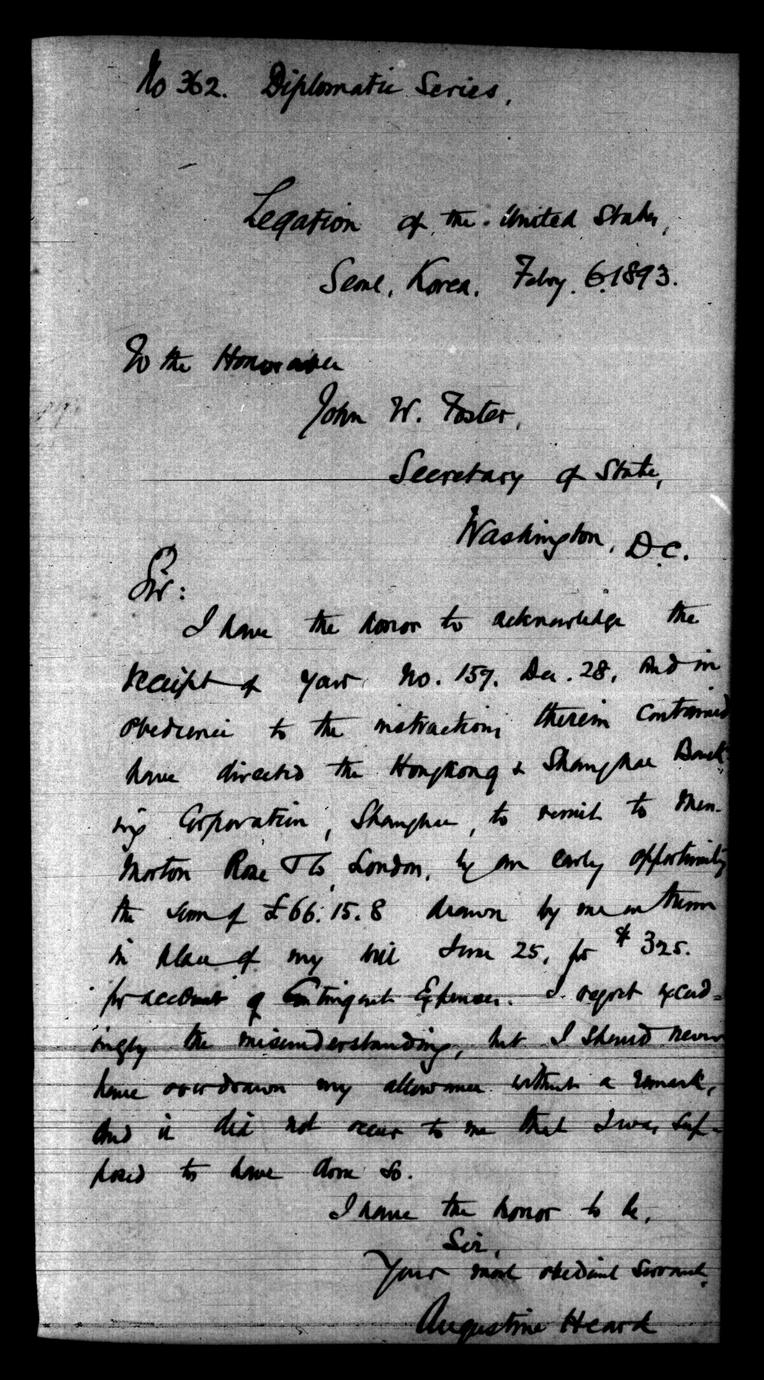 No 362. Diplomatic Series.
Legation of the United States,
Seoul, Korea. Feby. 6. 1893.
To the Honorable
John W. Foster,
Secretary of State,
Washington, D.C.
Sir:
I have the honor to acknowledge the
receipt of your No. 157. Dec. 28, and in
obedience to the instructions therein contained
have directed the Hongkong & Shanghae Bank-
ing Corporation, Shanghae, to remit to Mess.
Morton Rose & Co, London, by an early opportunity
the sum of £66.15.8 drawn by me on them
in place of my bill June 25, for $325.
for account of Contingent Expenses. I regret exceed-
ingly the misunderstanding, but I should never
have overdrawn my allowance without a remark,
and it did not occur to me that I was sup-
posed to have done so.
I have the honor to be,
Sir,
Your most obedient servant,
Augustine Heard